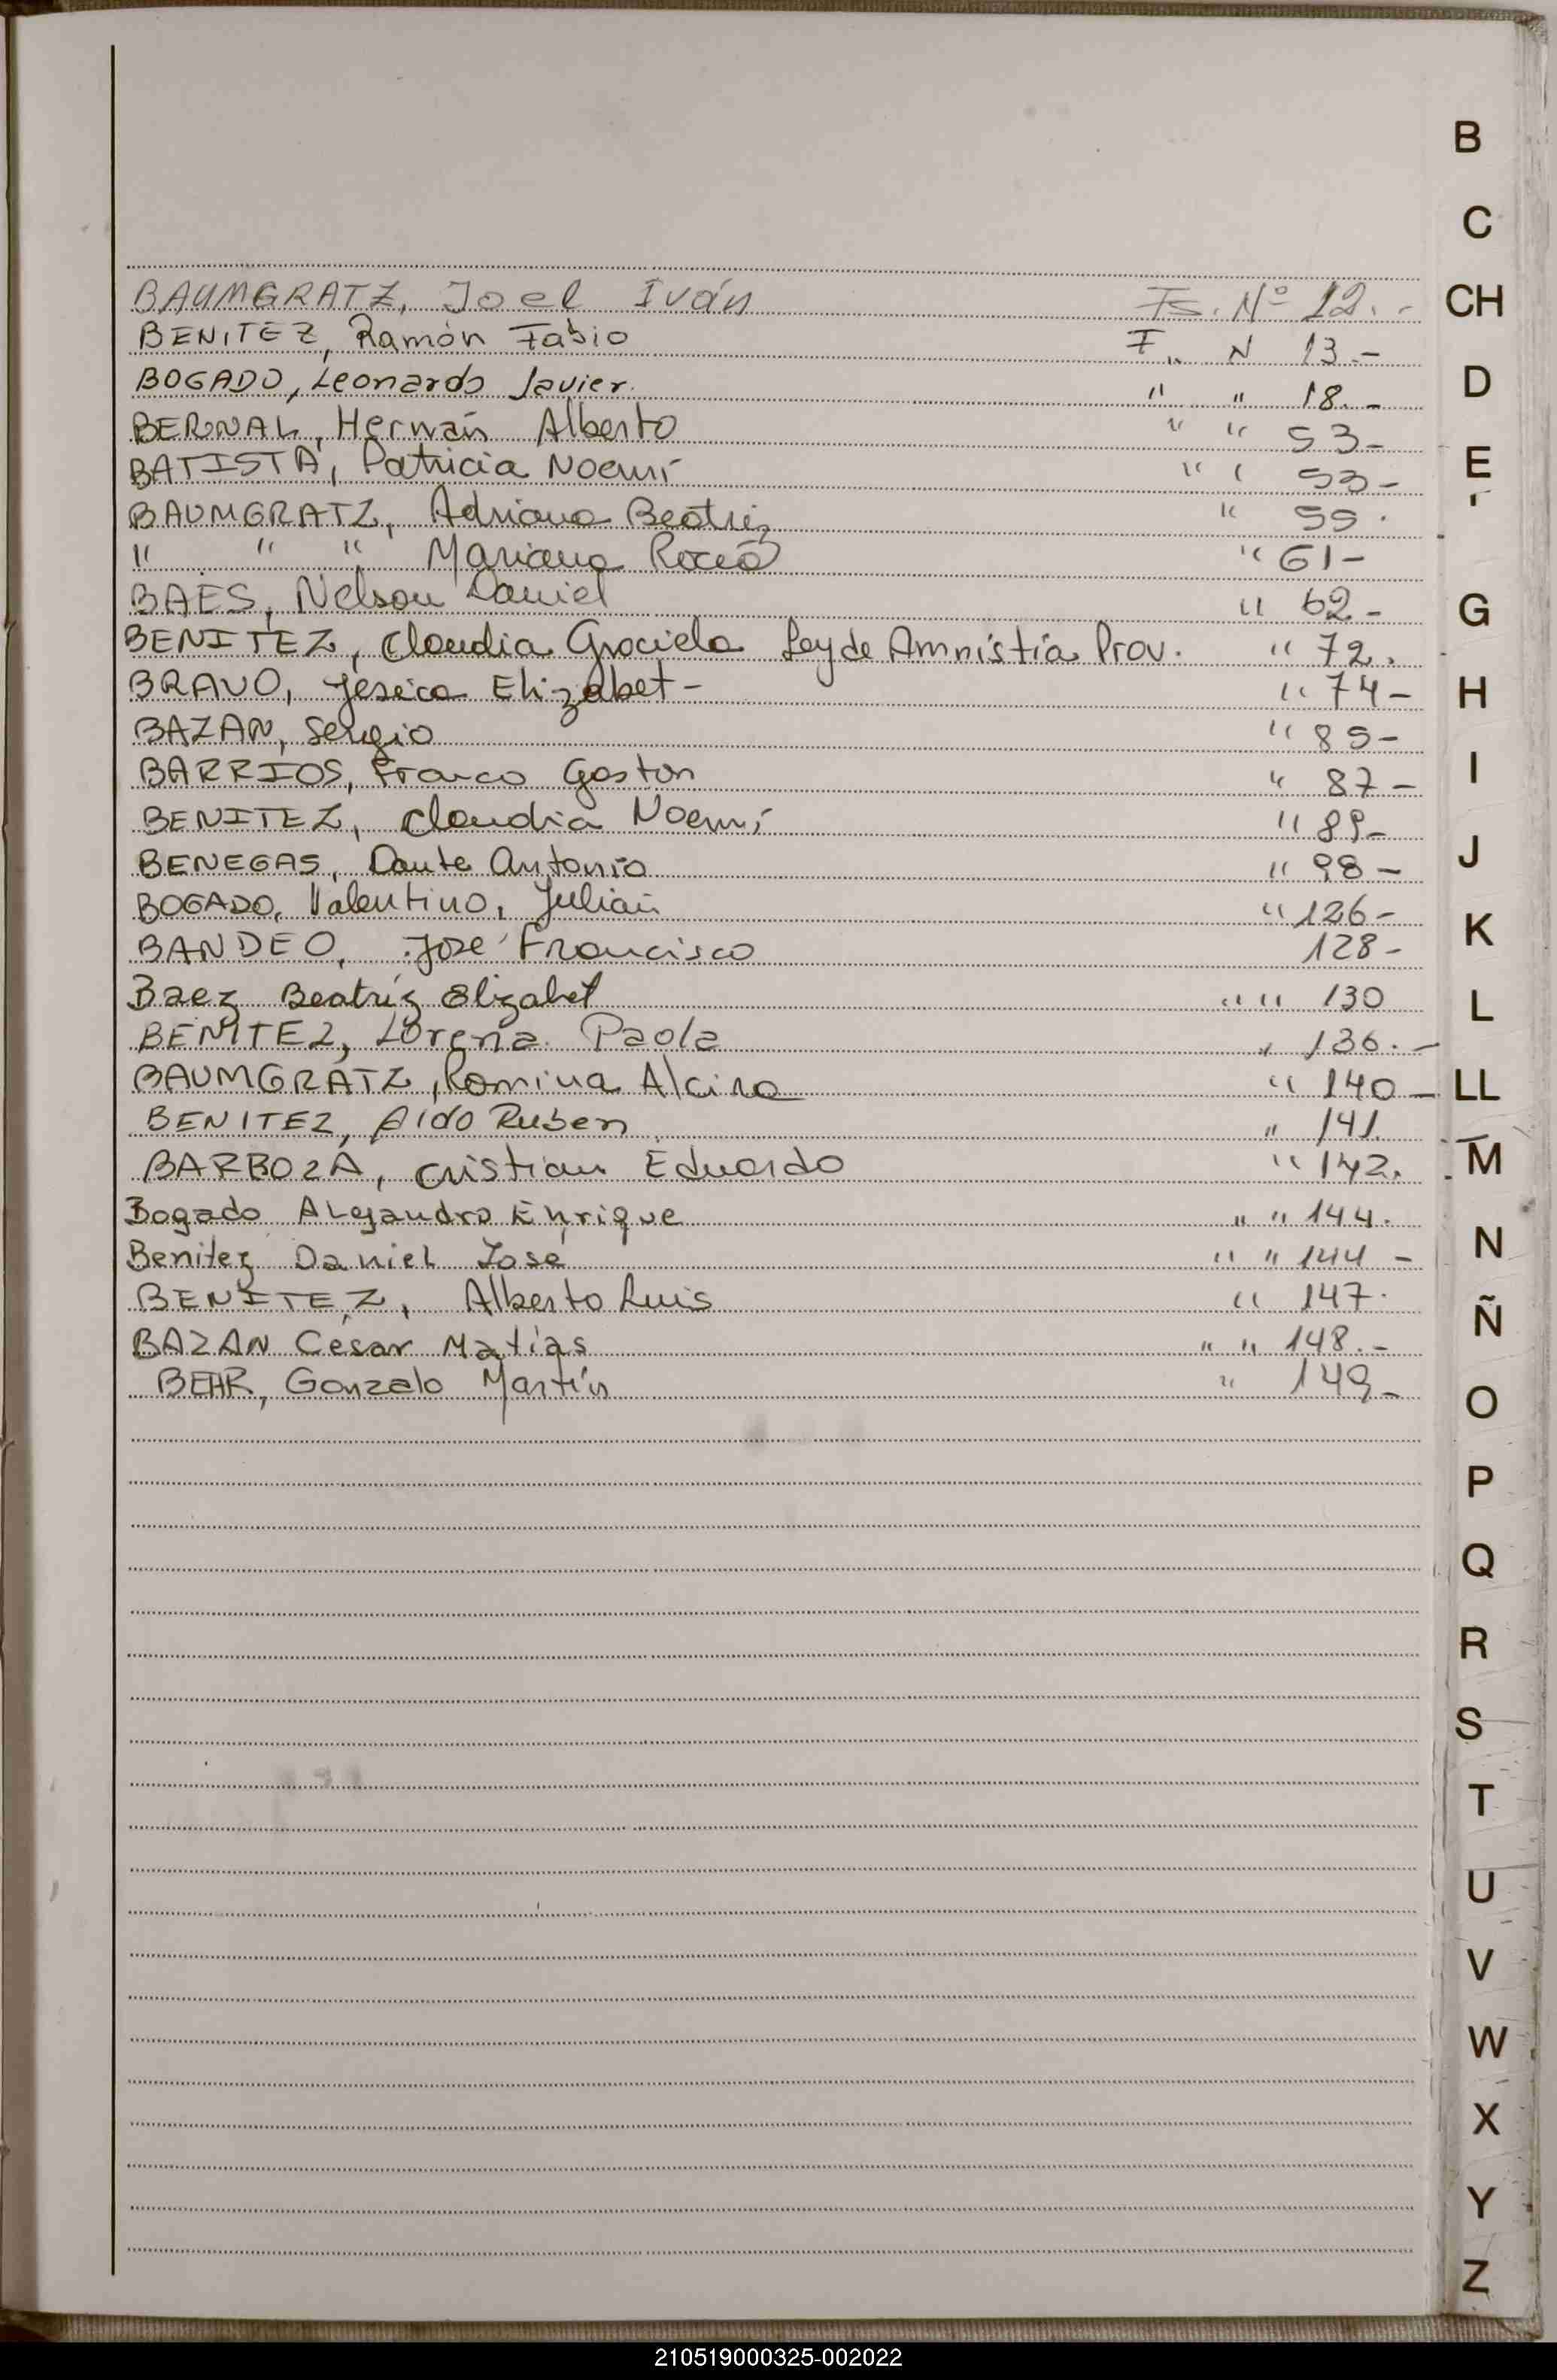 BAUMGRATZ, Joel Iván Fs. Nº 12.-
BENITEZ, Ramón Fabio F. " N 13.-
BOGADO, Leonardo Javier. " " 18.-
BERNAL, Hernán Alberto " " 53-
BATISTA, Patricia Noemí " " 53-
BAUMGRATZ, Adriana Beatriz " 55.
" " " Mariana Rocío " 61-
BAES, Nelson Daniel " 62-
BENITEZ, Claudia Graciela Ley de Amnistía Prov. " 72.
BRAVO, Yesica Elizabet- " 74-
BAZAN, Sergio " 85-
BARRIOS, Franco Gaston " 87-
BENITEZ, Claudia Noemí " 89-
BENEGAS, Dante Antonio " 98-
BOGADO, Valentino, Julián " 126-
BANDEO, José Francisco 128-
Baez Beatriz Elizabet " " 130
BENITEZ, Lorena Paola " 136.-
BAUMGRATZ, Romina Alcira " 140-
BENITEZ, Aldo Ruben " 141.
BARBOZA, Cristian Eduardo " 142.
Bogado Alejandro Enrique " " 144.
Benitez Daniel José " " 144-
BENITEZ, Alberto Luis " 147.
BAZAN César Matías " " 148.-
BEHR, Gonzalo Martín " 149-
B
C
CH
D
E
G
H
I
J
K
L
LL
M
N
Ñ
O
P
Q
R
S
T
U
V
W
X
Y
Z
210519000325-002022